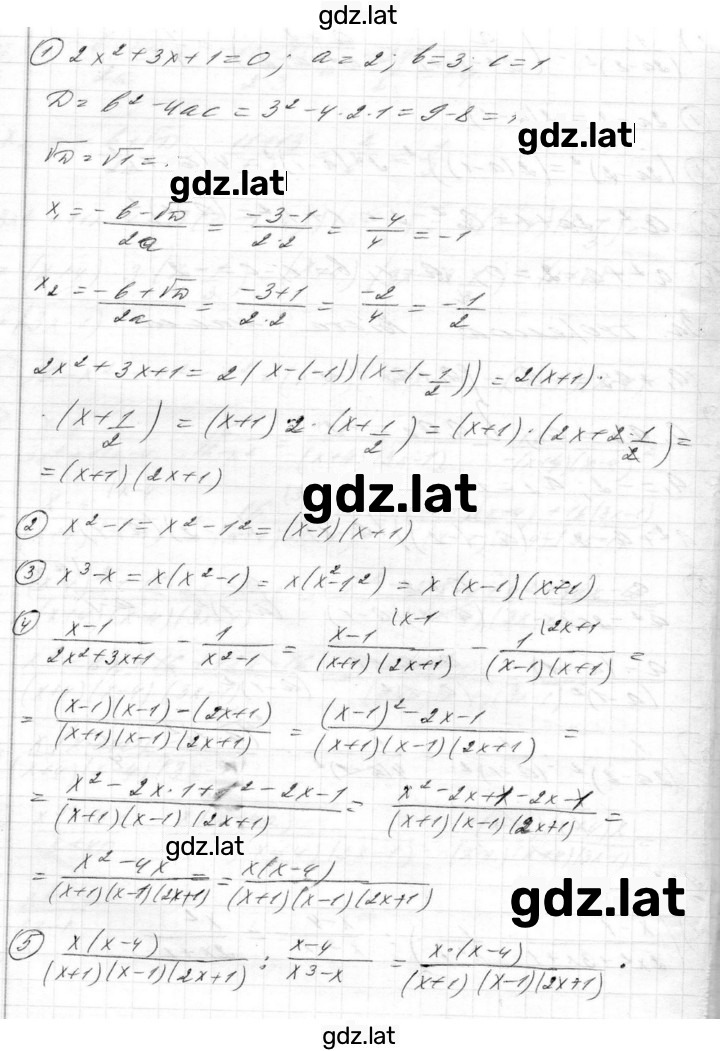 gdz.lat
① 2x² + 3x + 1 = 0; a = 2; b = 3; c = 1
D = b² - 4ac = 3² - 4·2·1 = 9 - 8 =
gdz.lat
√D = √1 =
gdz.lat
x₁ = (-b - √D)/(2a) = (-3 - 1)/(2·2) = -4/4 = -1
x₂ = (-b + √D)/(2a) = (-3 + 1)/(2·2) = -2/4 = -1/2
2x² + 3x + 1 = 2(x - (-1))(x - (-1/2)) = 2(x+1)·
·(x + 1/2) = (x+1)·2·(x + 1/2) = (x+1)·(2x + 2·1/2) =
= (x+1)(2x+1)
gdz.lat
② x² - 1 = x² - 1² = (x-1)(x+1)
③ x³ - x = x(x² - 1) = x(x² - 1²) = x(x-1)(x+1)
④ (x-1)/(2x²+3x+1) - 1/(x²-1) = (x-1)\x-1/((x+1)(2x+1)) - 1\2x+1/((x-1)(x+1)) =
= ((x-1)(x-1) - (2x+1))/((x+1)(x-1)(2x+1)) = ((x-1)² - 2x - 1)/((x+1)(x-1)(2x+1)) =
= (x² - 2x·1 + 1² - 2x - 1)/((x+1)(x-1)(2x+1)) = (x² - 2x + 1 - 2x - 1)/((x+1)(x-1)(2x+1)) =
gdz.lat
= (x² - 4x)/((x+1)(x-1)(2x+1)) = = x(x-4)/((x+1)(x-1)(2x+1))
gdz.lat
⑤ x(x-4)/((x+1)(x-1)(2x+1)) : (x-4)/(x³-x) = x·(x-4)/((x+1)(x-1)(2x+1)) ·
gdz.lat